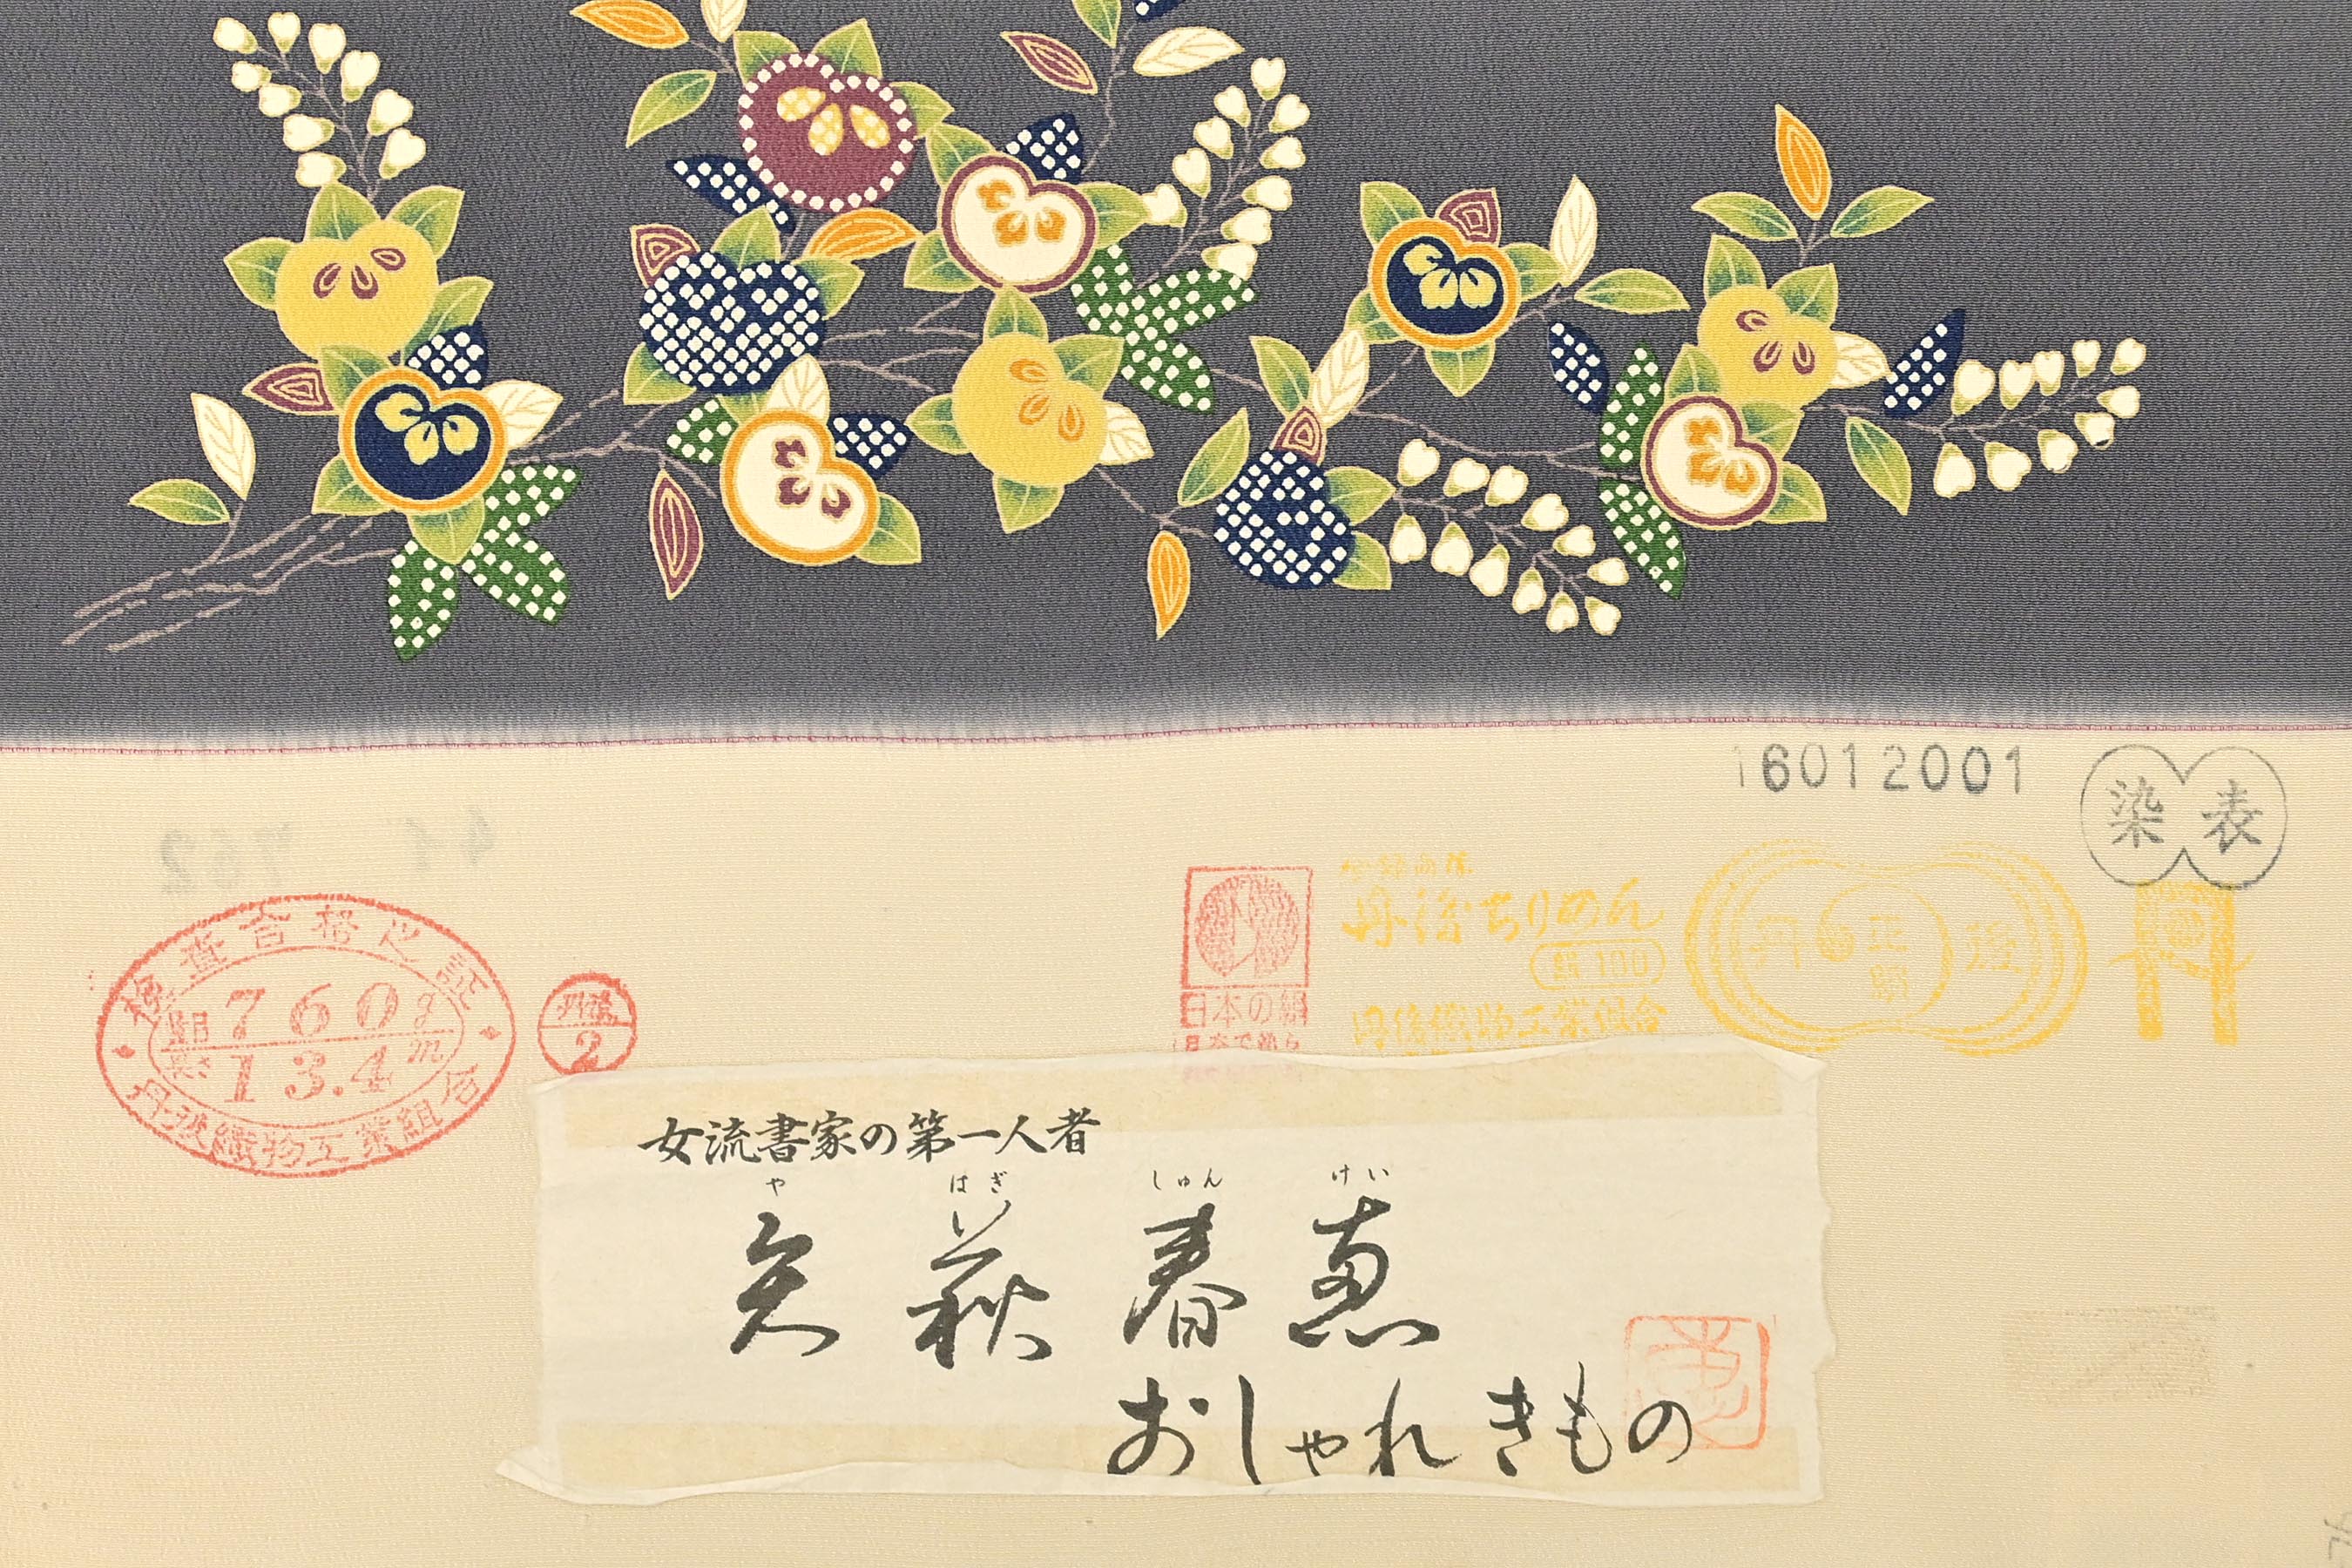 16012001
染 表
検査合格之証
絹 760g
長さ 13.4m
丹後織物工業組合
2
日本の絹
丹後ちりめん
絹100
丹後織物工業組合
女流書家の第一人者
や はぎ しゅん けい
矢萩春恵
おしゃれきもの